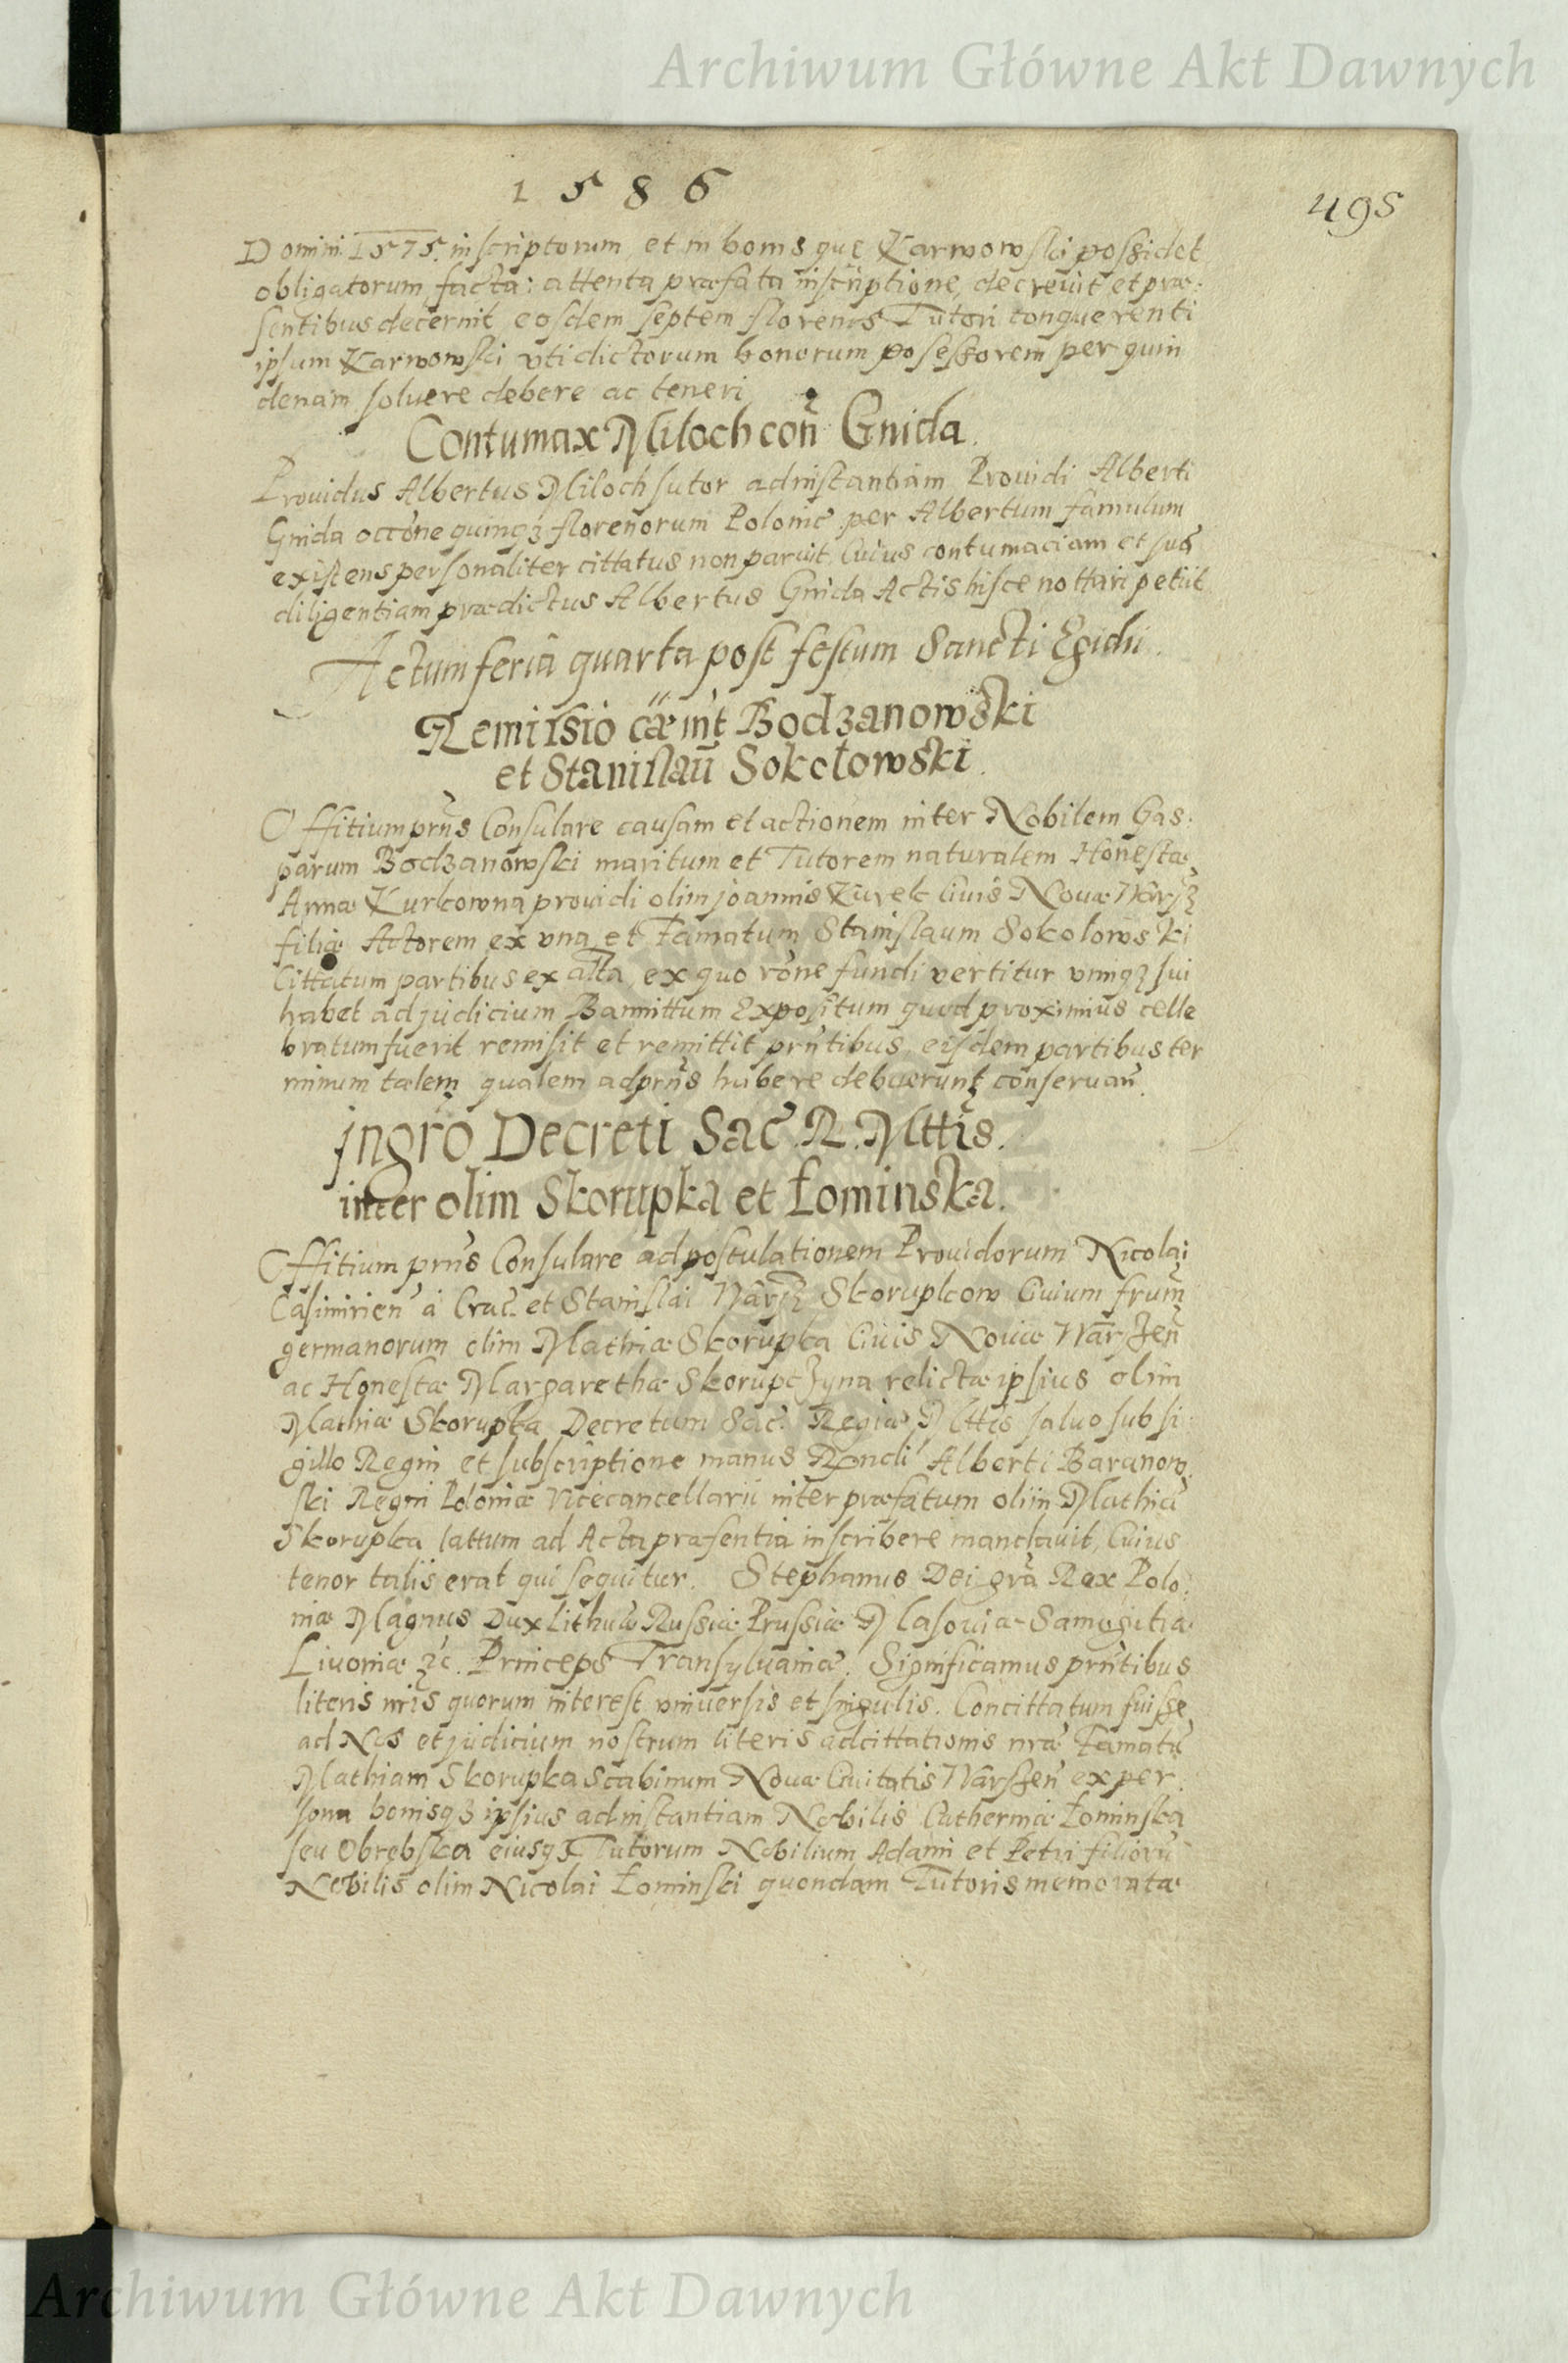 Archiwum Główne Akt Dawnych
1586
495
Domini 1575. inscriptorum, et in bonis que Karwowski possidet
obligatorum, facta: attenta præfata inscriptione, decrevit et præ-
sentibus decernit eosdem septem florenos Tutori conquerenti
ipsum Karwowski vti dictorum bonorum posessorem per quin
denam soluere debere ac teneri
Contumax Miloch con̄ Gnida.
Prouidus Albertus Miloch sutor ad instantiam Prouidi Alberti
Gnida occōne quinqꝫ florenorum Polonic̄ per Albertum famulum
existens personaliter cittatus non paruit, Cuius contumaciam et suā
diligentiam prædictus Albertus Gnida Actis hisce nottari petiit
Actum feria quarta post festum Sancti Egidii.
Remissio cæ int̄ Bodzanowski
et Stanislaū Sokołowski.
Offitium prn̄s Consulare causam et actionem inter Nobilem Gas-
parum Bodzanowski maritum et Tutorem naturalem Honestæ
Annæ Kurkowna prouidi olim joannis Kurek Ciuis Nouæ Warsz
filiæ Actorem ex vna et Famatum Stanislaum Sokolowski
Cittatum partibus ex alta, ex quo rōne fundi vertitur vnuīqꝫ sui
habet ad judicium Bannittum Expositum quod proximius celle
bratum fuerit remisit et remittit prn̄tibus, eisdem partibus ter
minum talem qualem ad prn̄s habere debuerunt conseruan̄.
Jngrō Decreti Sac. R. Mttis.
inter olim Skorupka et Łominska.
Offitium prn̄s Consulare ad postulationem Prouidorum Nicolai
Casimirien̄ a Crac. et Stanislai Warsz Skorupkow Ciuium frum̄
germanorum olim Mathiæ Skorupka Ciuis Nouæ Warszen̄
ac Honestæ Margarethæ Skorupczyna relictæ ipsius olim
Mathiæ Skorupka Decretum Sac. Regiæ Mttis saluo sub si
gillo Regni et subscriptione manus Rn̄di Alberti Baranow
ski Regni Poloniæ Vicecancellarii inter præfatum olim Mathiā
Skorupka lattum ad Acta præsentia inscribere mandauit, Cuius
tenor talis erat qui sequitur. Stephanus Dei grā Rex Polo-
niæ Magnus Dux Lithuæ Russiæ Prussiæ Masouiæ Samogitiæ
Liuoniæ ꝛc. Princeps Transyluaniæ. Significamus prn̄tibus
literis nrīs quorum interest vniuersis et singulis. Concittatum fuisse
ad Nos et judicium nostrum literis adcittationis nræ Famatū
Mathiam Skorupka Scabinum Nouæ Ciuitatis Warszen̄ ex per
sona bonisqꝫ ipsius ad instantiam Nobilis Catherinæ Łominska
seu Obrębska eiusqꝫ Tutorum Nobilium Adami et Petri filiorū
Nobilis olim Nicolai Łominski quondam Tutoris memoratæ
Archiwum Główne Akt Dawnych